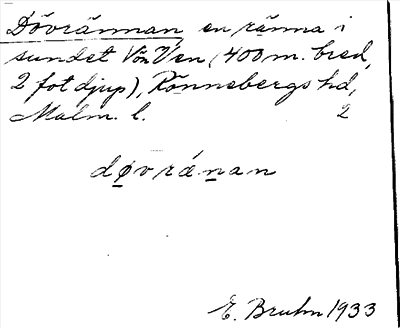 Dövrännan en ränna i
sundet V̈ön Ven (400 m. bred,
2 fot djup), Rönnebergs hd,
Malm. l. 2
døvrǽnan
E. Bruhn 1933